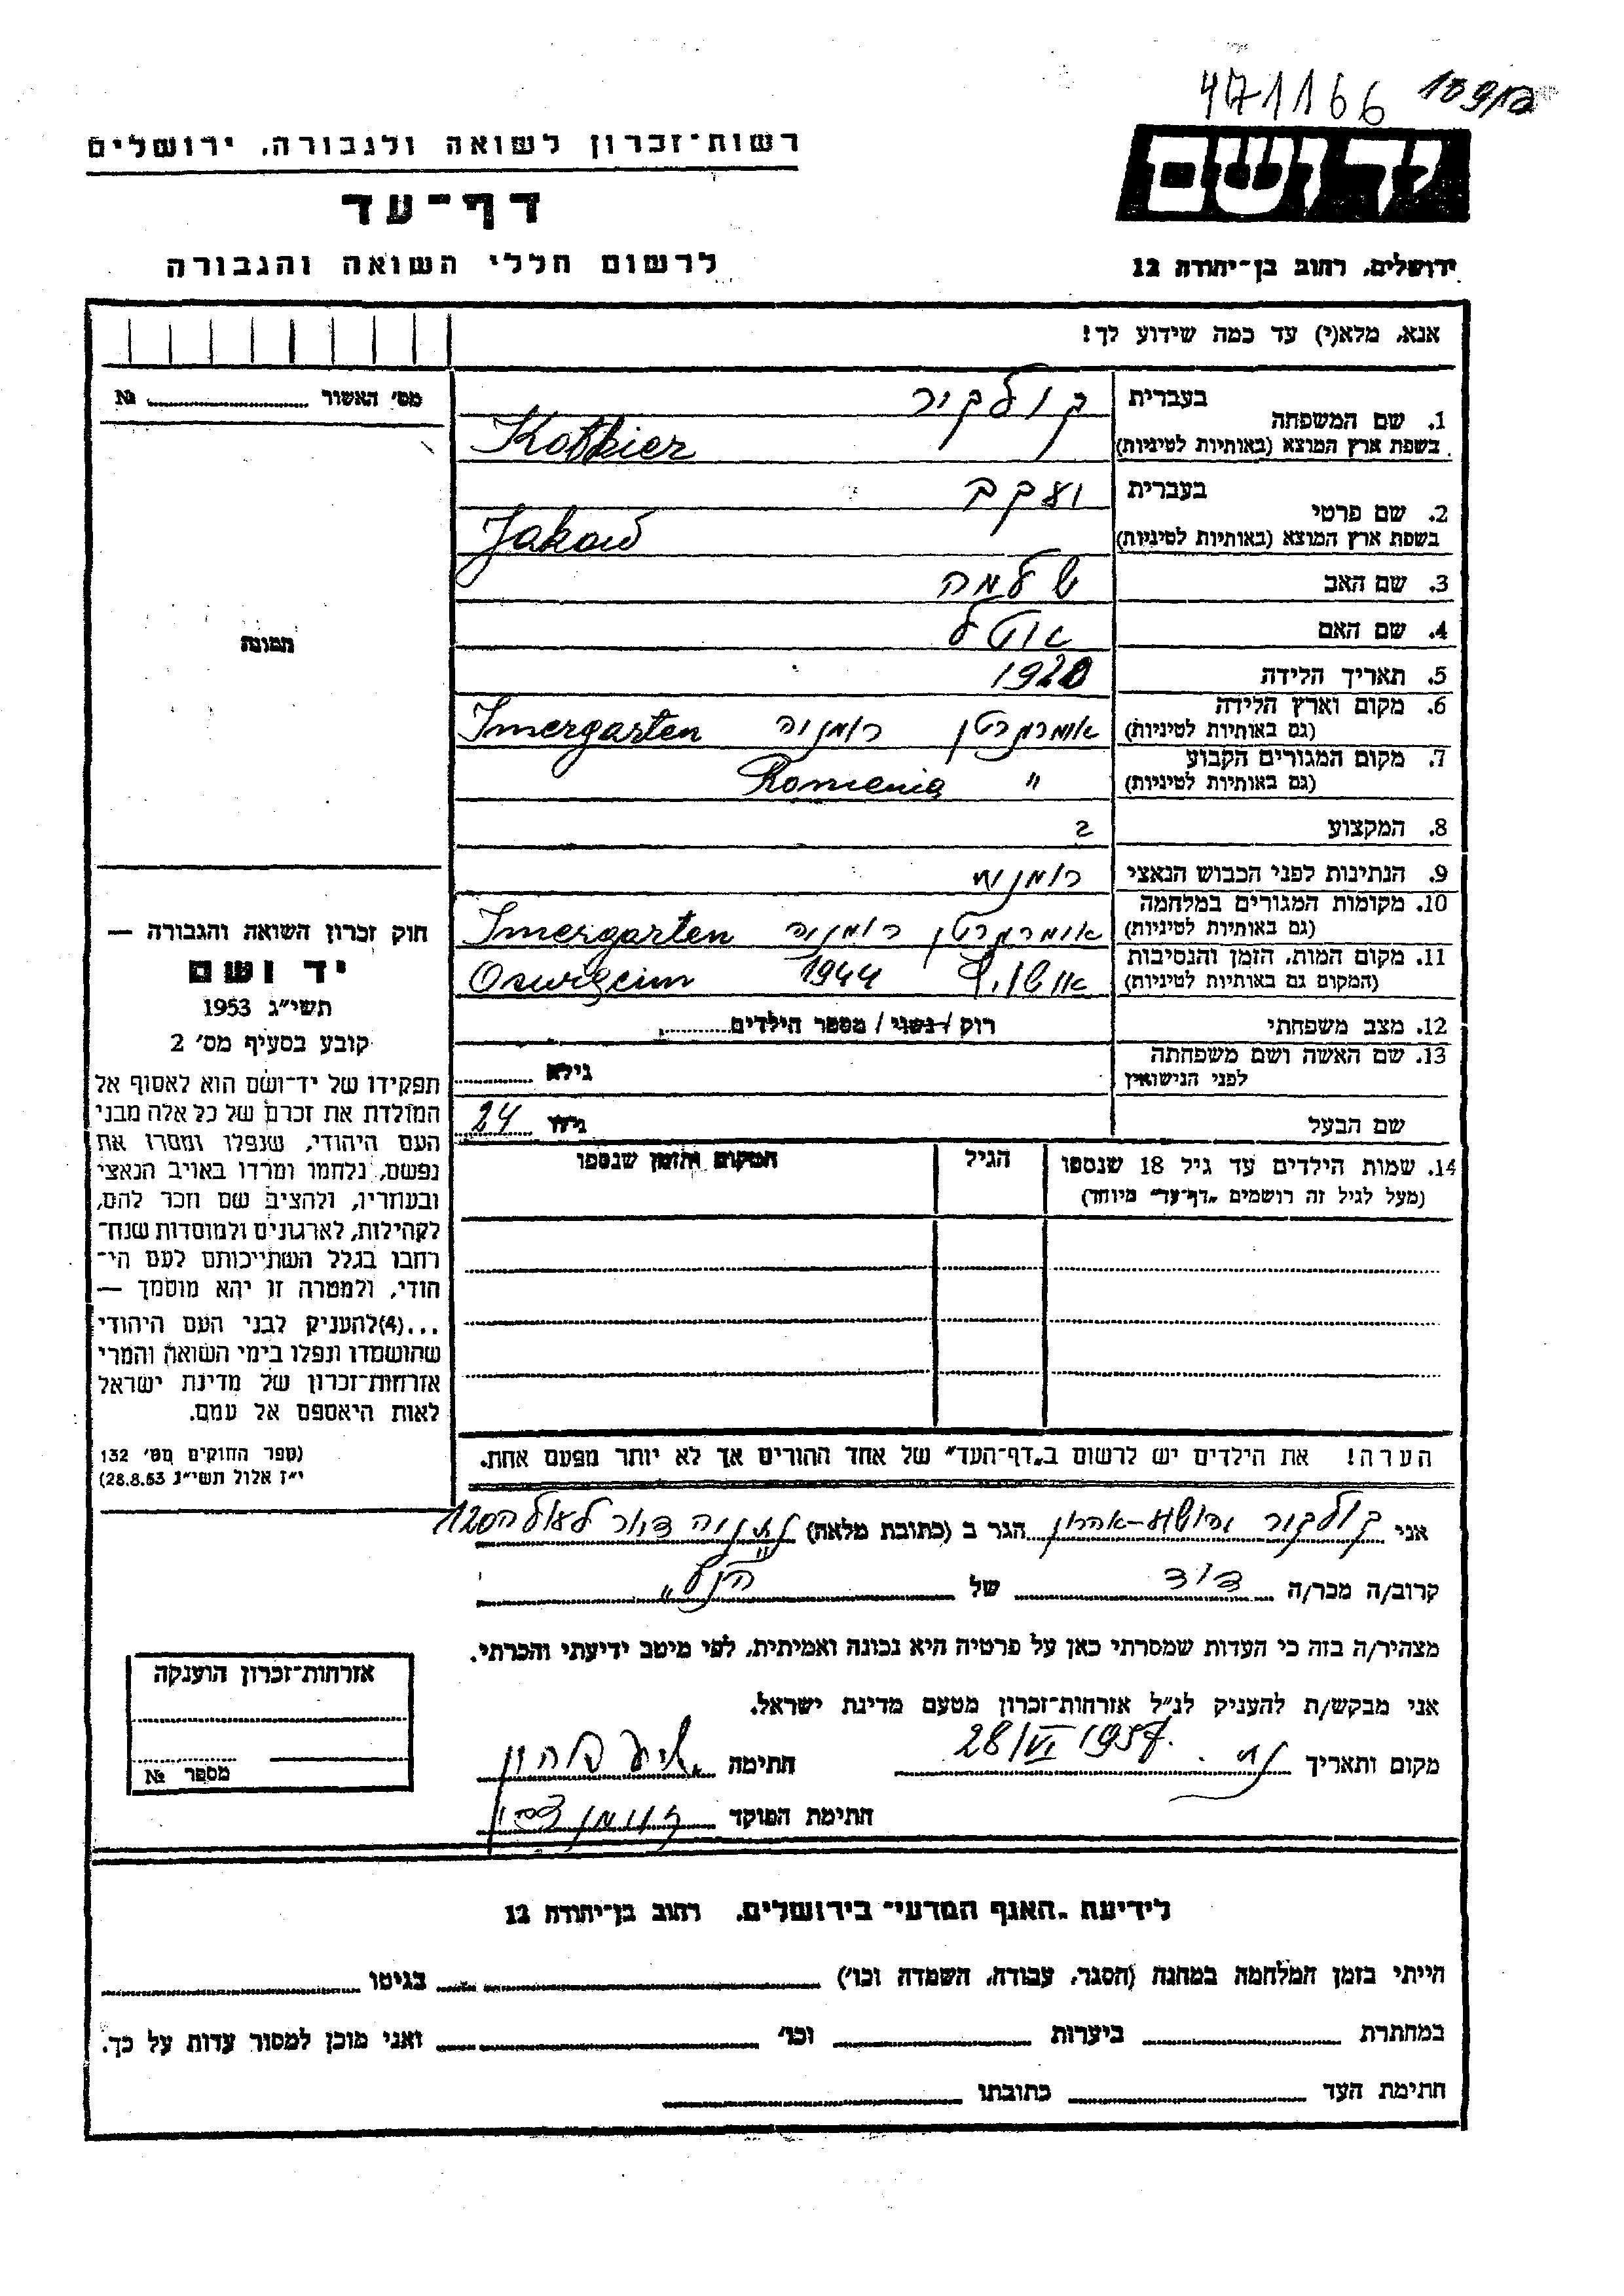 471166
רשות־זכרון לשואה ולגבורה, ירושלים
יד ושם
דף־עד
לרשום חללי השואה והגבורה
ירושלים, רחוב בן־יהודה 12
אנא, מלא(י) עד כמה שידוע לך!
מס' האשור № ........
בעברית
1. שם המשפחה
בשפת ארץ המוצא (באותיות לטיניות)
קולקיר
Kolkier
בעברית
2. שם פרטי
בשפת ארץ המוצא (באותיות לטיניות)
יעקב
Jakow
3. שם האב שלמה
4. שם האם
5. תאריך הלידה 1920
6. מקום וארץ הלידה
(גם באותיות לטיניות)
רומניה Imergarten
7. מקום המגורים הקבוע
(גם באותיות לטיניות)
" Romenia
8. המקצוע ?
9. הנתינות לפני הכבוש הנאצי
10. מקומות המגורים במלחמה
(גם באותיות לטיניות)
רומניה Imergarten
11. מקום המות, הזמן והנסיבות
(המקום גם באותיות לטיניות)
1944 Oswięcim
12. מצב משפחתי רוק / נשוי / מספר הילדים........
13. שם האשה ושם משפחתה
לפני הנישואין
גילא ........
שם הבעל גילו 24
14. שמות הילדים עד גיל 18 שנספו
(מעל לגיל זה רושמים "דף־עד" מיוחד)
הגיל
המקום והזמן שנספו
הערה! את הילדים יש לרשום ב"דף־העד" של אחד ההורים אך לא יותר מפעם אחת.
תמונה
חוק זכרון השואה והגבורה —
יד ושם
תשי"ג 1953
קובע בסעיף מס' 2
תפקידו של יד־ושם הוא לאסוף אל
המולדת את זכרם של כל אלה מבני
העם היהודי, שנפלו ומסרו את
נפשם, נלחמו ומרדו באויב הנאצי
ובעוזריו, ולהציב שם וזכר להם,
לקהילות, לארגונים ולמוסדות שנח־
רחבו בגלל השתייכותם לעם הי־
הודי, ולמטרה זו יהא מוסמך —
...(4)להעניק לבני העם היהודי
שהושמדו ונפלו בימי השואה והמרי
אזרחות־זכרון של מדינת ישראל
לאות היאספם אל עמם.
(ספר החוקים מס' 132
י"ז אלול תשי"ג 28.8.53)
אני קולקיר יהושע-אהרון הגר ב (כתובת מלאה) נתניה
קרוב/ה מכר/ה דוד של "הנ"ל"
מצהיר/ה בזה כי העדות שמסרתי כאן על פרטיה היא נכונה ואמיתית, לפי מיטב ידיעתי והכרתי.
אני מבקש/ת להעניק לנ"ל אזרחות־זכרון מטעם מדינת ישראל.
מקום ותאריך 28/VI 1957. חתימה
חתימת הפוקד
אזרחות־זכרון הוענקה
מספר №
לידיעת "האגף המדעי" בירושלים, רחוב בן־יהודה 12
הייתי בזמן המלחמה במחנה (הסגר, עבודה, השמדה וכו') בגיטו
במחתרת ביערות וכו' ואני מוכן למסור עדות על כך.
חתימת העד כתובתו